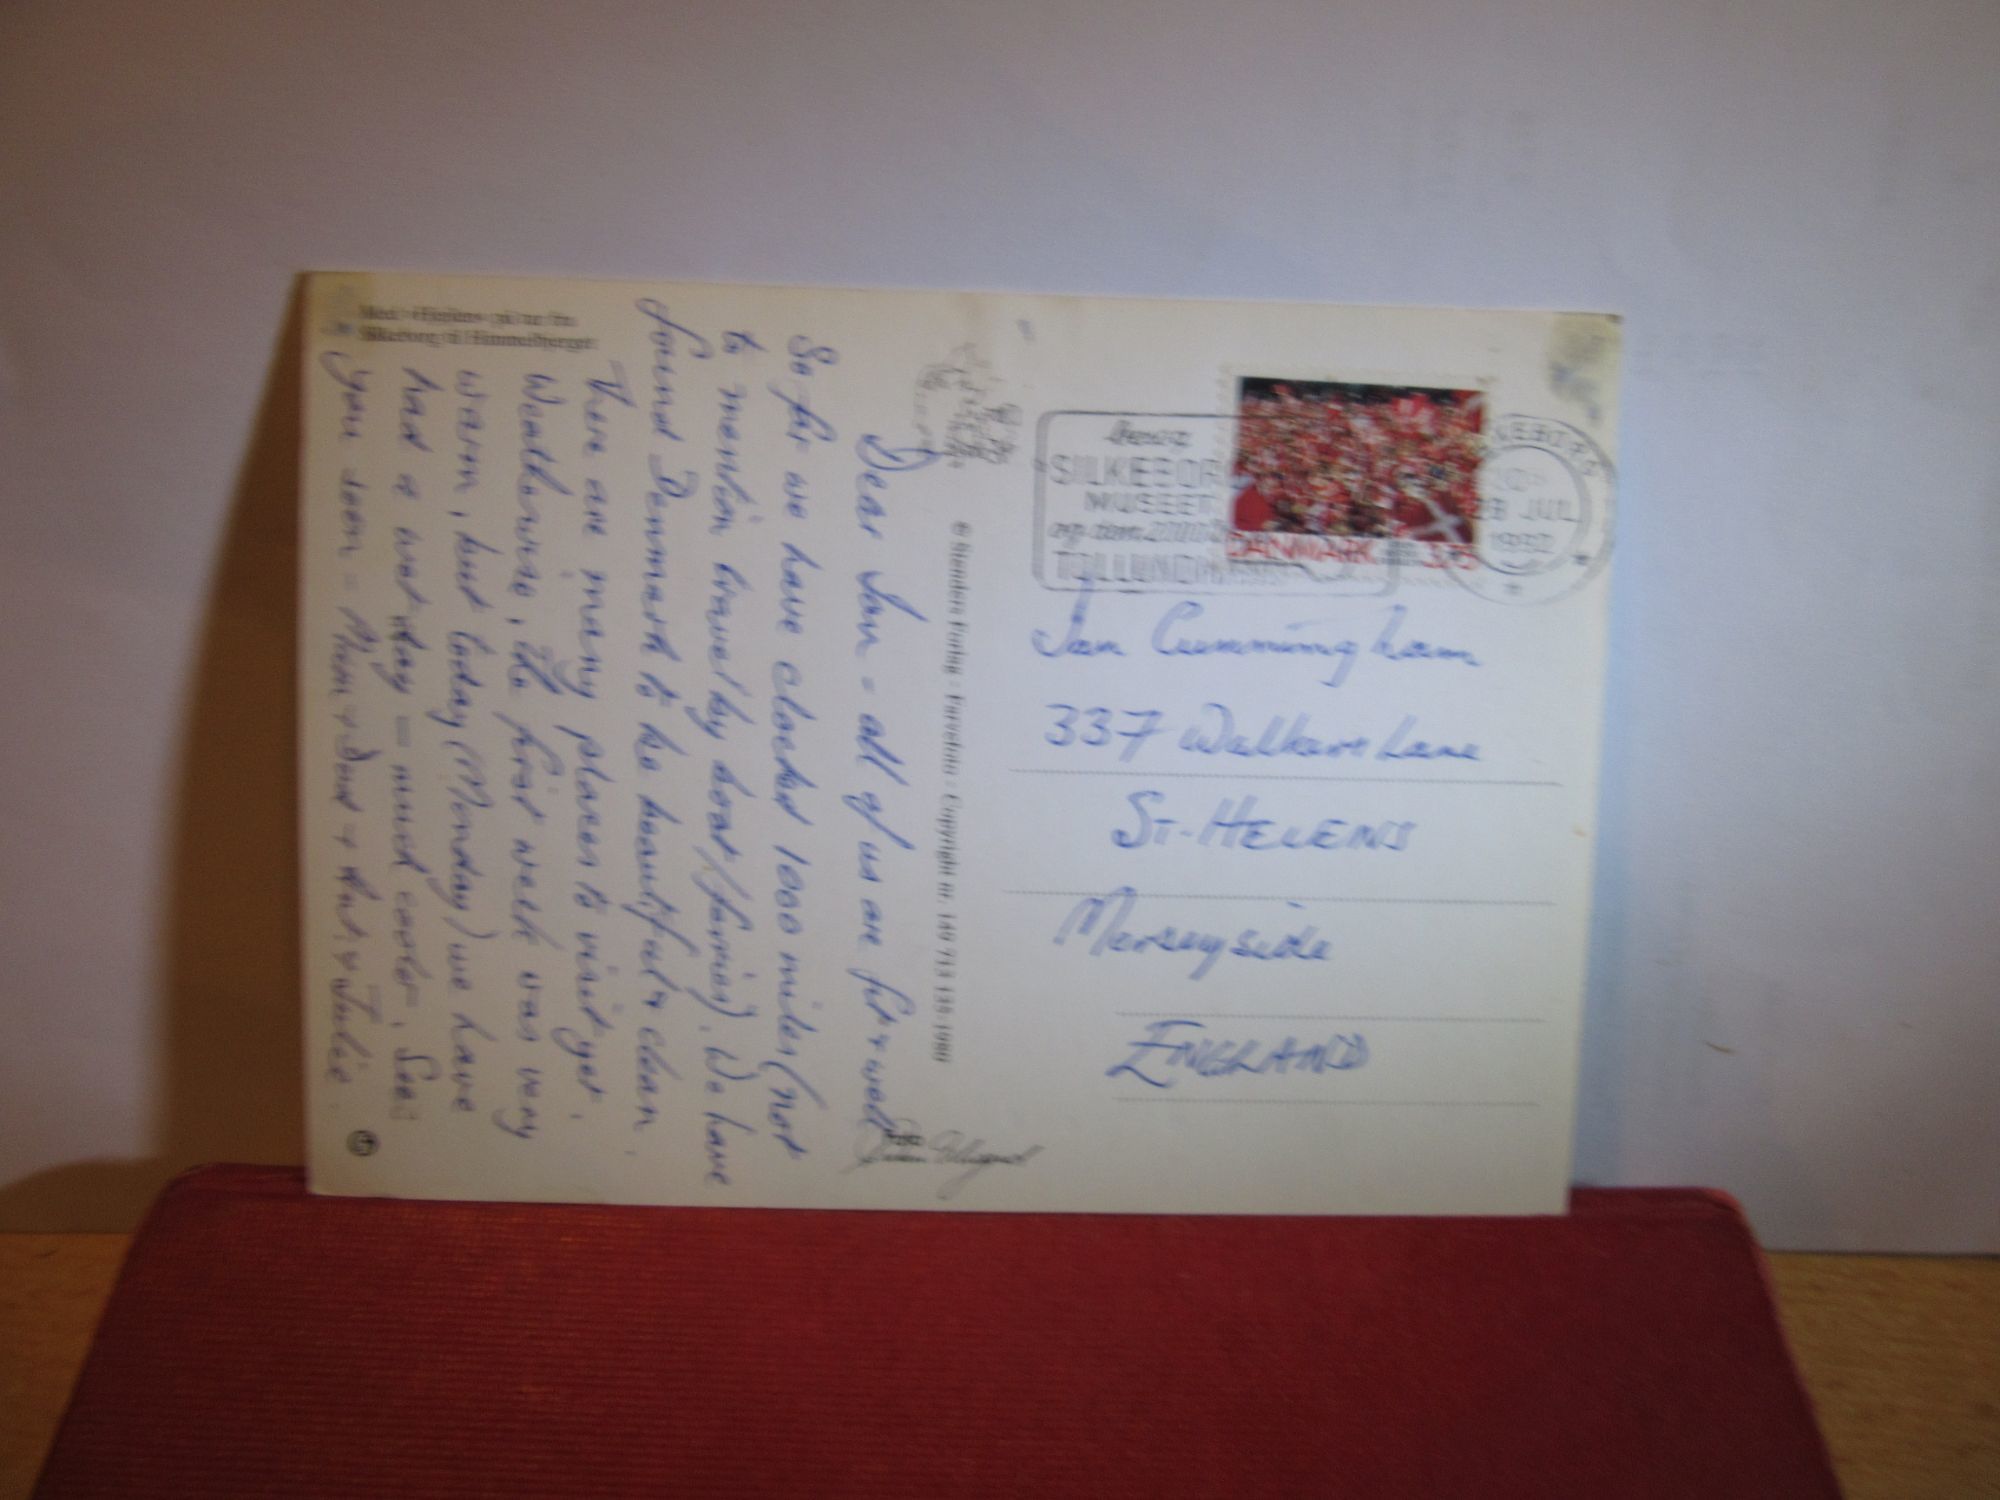 Med »Hjejlen« på tur fra
Silkeborg til Himmelbjerget
Dear Jan = all of us are fit & well
So far we have clocked 1000 miles (not
to mention travel by boat/ferries). We have
found Denmark to be beautiful & clean.
There are many places to visit yet.
Weatherwise, the first week was very
warm, but today (Monday) we have
had a wet day = much cooler. See
you soon = Mom & Dad & & Julie.
© Stenders Forlag - Copyright nr. 149 713 139-1990
Foto:
besøg
SILKEBORG
MUSEET
og den 2000
TOLLUND
DANMARK 3.75
KEBORG
28 JUL
1992
Jan Cunningham
337 Walkers Lane
ST-HELENS
Merseyside
ENGLAND